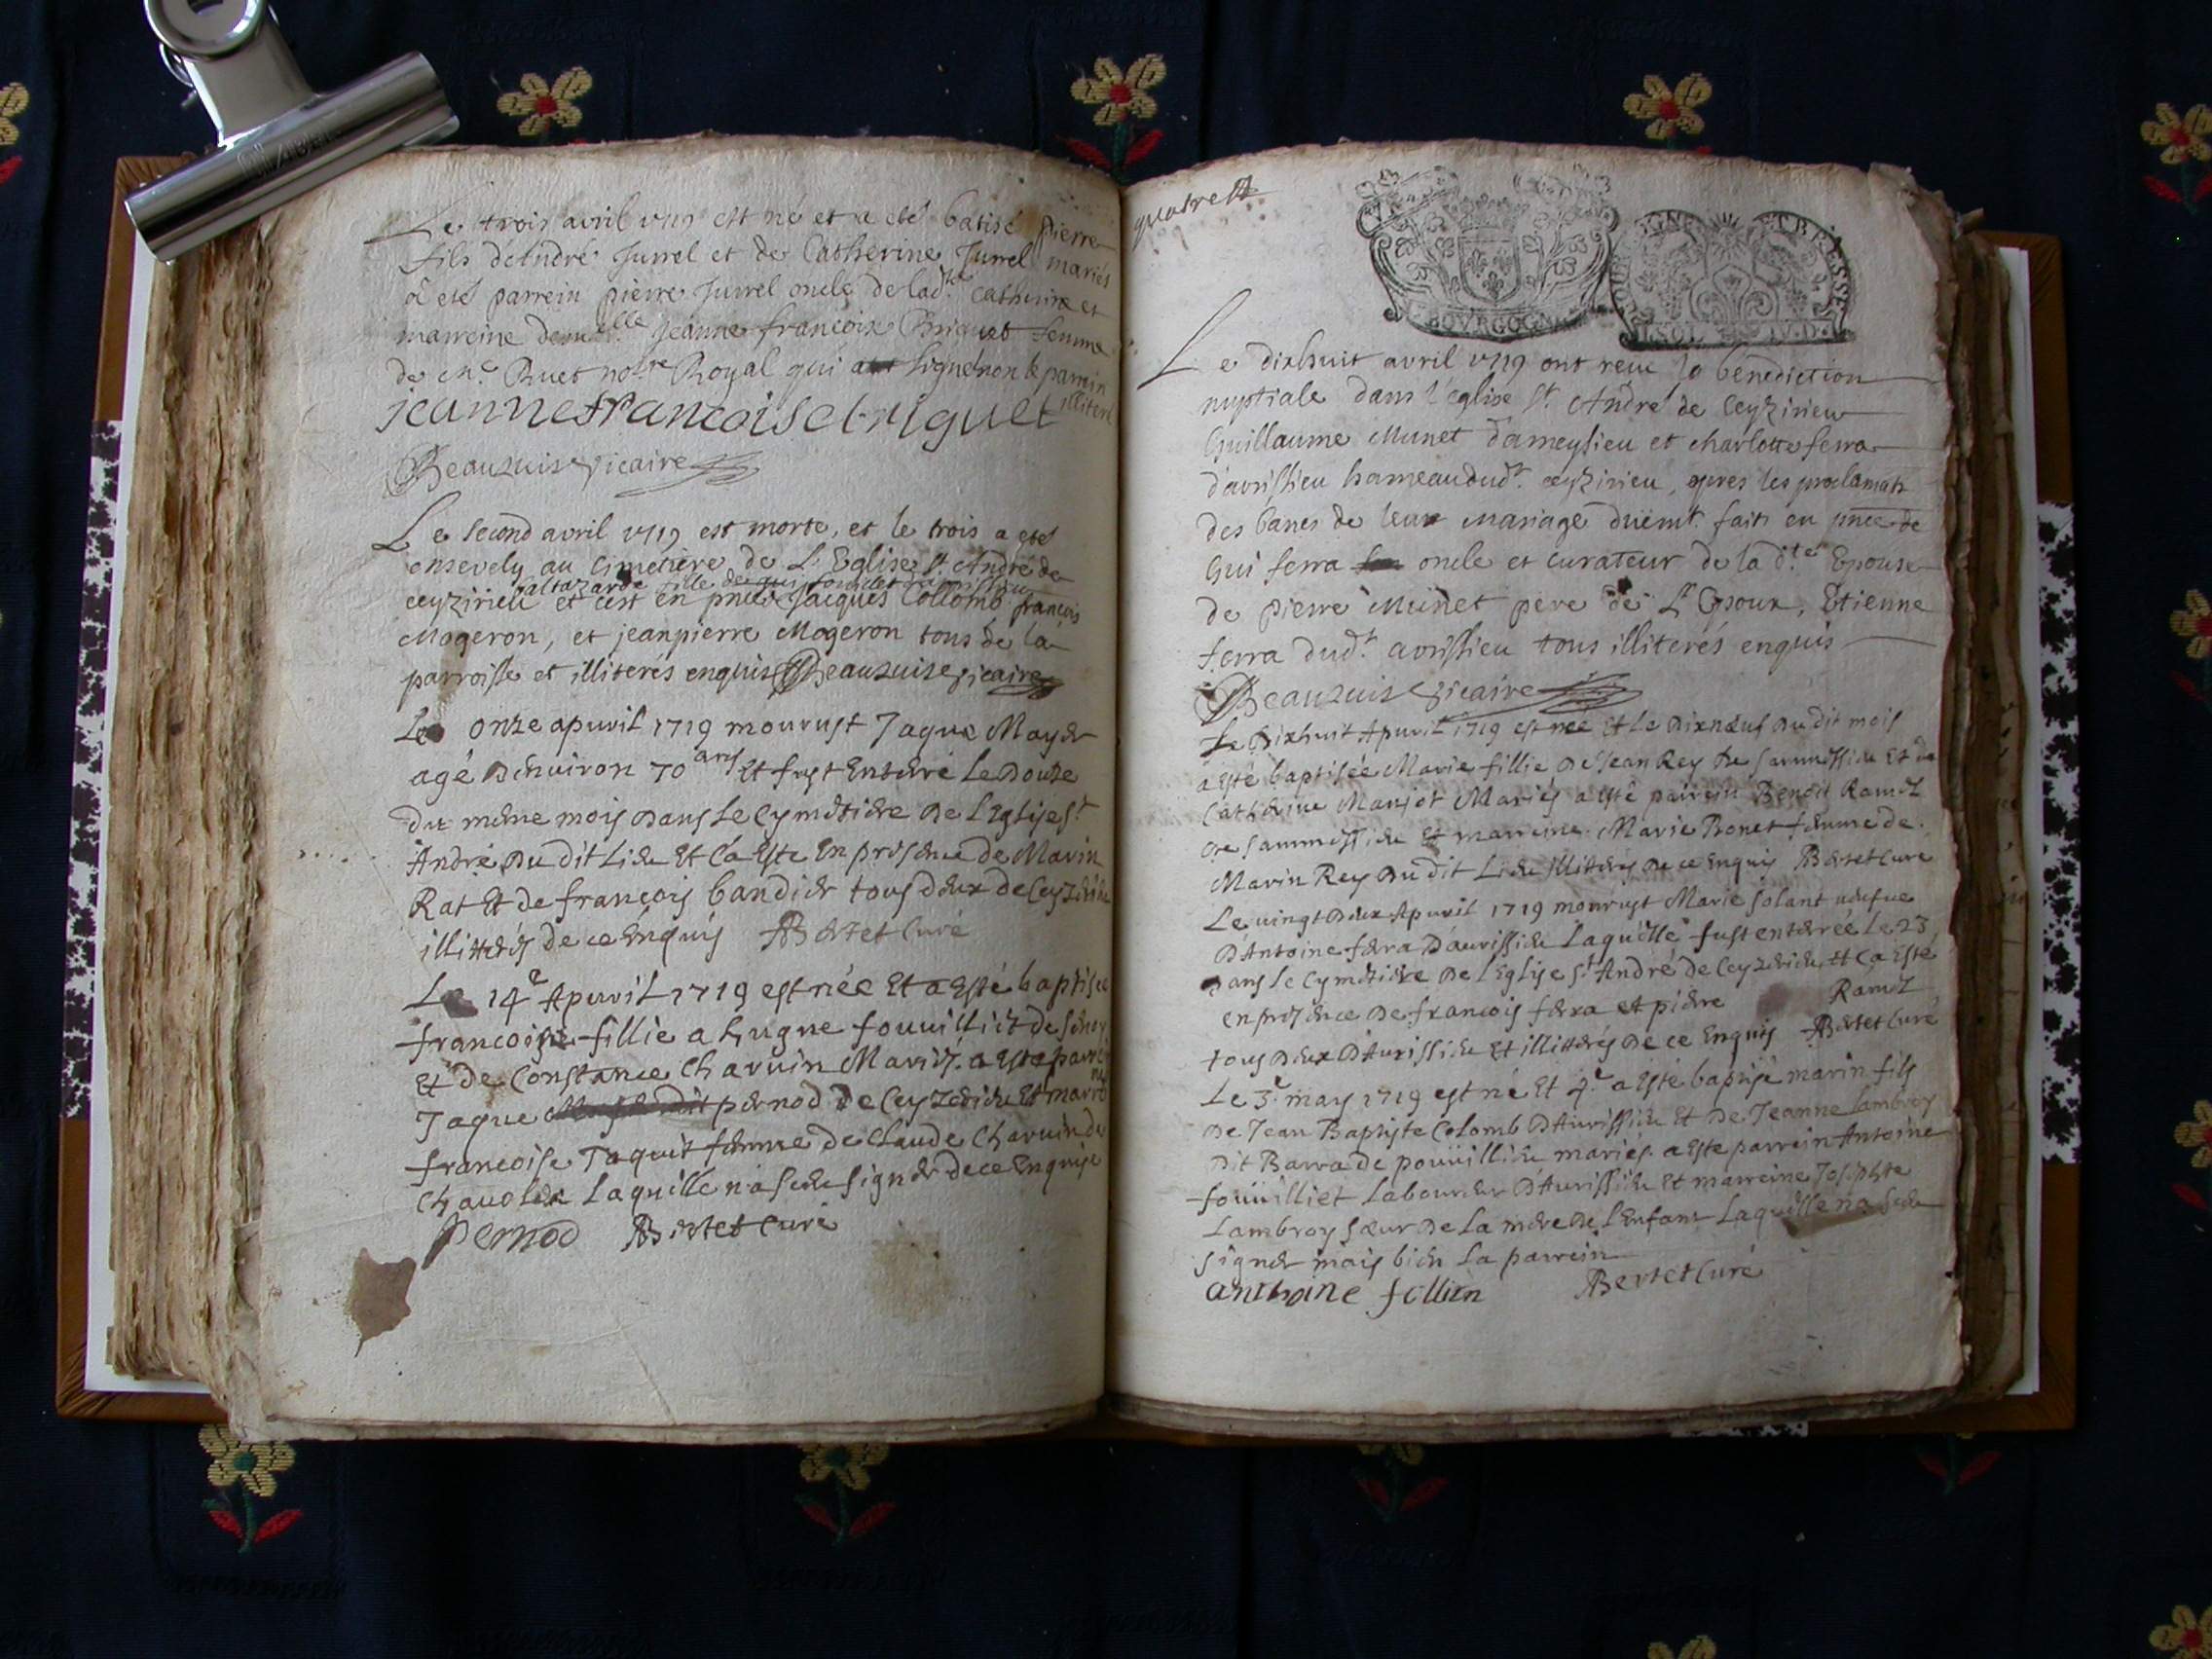 Le trois avril 1719 est né et a eté batisé pierre
fils d'André Jurrel et de Catherine Jurrel mariés
a eté parrein pierre Jurrel oncle de lad.te Catherine et
marreine demelle Jeanne françoise Briquet femme
de Me. Buet notre Royal qui a signé non le parrein
illiteré
jeanne francoise briguet
Beauzuis vicaire
Le second avril 1719 est morte, et le trois a eté
ensevely au Cimetiere de L'Eglise St. André de
baltazarde fille de
ceyzirieu et cest en pnce Jacques Collomb françois
Mogeron, et jeanpierre Mogeron tous de la
parroisse et illiterés enquis Beauzuis vicaire
Le onze apuril 1719 mourust Jaque Mayer
agé Denuiron 70 ans Et fust Enterré Le Douze
du mesme mois Dans Le Cymetiere De L'Eglise St
André Du dit Lieu Et C'a Este En presence de Marin
Rat Et de françois bandier tous deux de Ceyzerieu
illitterés de ce Enquis Bertet Curé
Le 14e Apuril 1719 est née Et a Esté baptisee
francoise fillie a hugne fouuilliet de
Et de Constance Charuin Mariés. a Este parrein
Jaque pernod De Ceyzerieu Et marreine
francoise Jaquet femme de Claude Charuin de
Laquelle n'a sceu signer de ce Enquise
Pernod Bertet Curé
quatre
BOVRGOGNE
ET BRESSE
Le dixhuit avril 1719 ont reçu la bénediction
nuptiale dans l'eglise St. André de Ceyzirieu
Guillaume Munet d'ameysieu et charlotte ferra
d'avrissieu hameau dudt. ceyzirieu, apres les proclamats
des bancs de leur mariage düemt. faits en pnce de
Gui ferra oncle et curateur de la d.te Epouse
de pierre Munet pere de L'Epoux, Etienne
ferra dudt. avrissieu tous illiterés enquis
Beauzuis vicaire
Le Dixhuit Apuril 1719 est née Et Le Dixneuf Du dit mois
a esté baptisée Marie fillie De Jean Rey De Et de
Catherine Manjot Mariés a esté parrein Benoit Ramel
De Et marreine Marie Bonet femme de
Marin Rey Du dit Lieu illiterés De ce Enquis Bertet Curé
Le uingt Deux Apuril 1719 mourust Marie solant ueufue
D'Antoine ferra D'aurissieu Laquelle fust enterrée Le 23
Dans Le Cymetiere De L'Eglise St André de Ceyzerieu Et C'a Esté
en presence De francois ferra et piere Ramel
tous Deux D'Aurissieu Et illitterés De ce Enquis Bertet Curé
Le 3e may 1719 est né Et 4e a Esté baptisé marin fils
De Jean Baptiste Colomb D'Aurissieu Et De Jeanne Lambroy
Dit Barra de pouuillieu mariés. a Esté parrein Antoine
fouuilliet Laboureur D'Aurissieu Et marreine Josephte
Lambroy sœur De La mere De L'Enfant Laquelle na sceu
signer mais bien La parrein
anthoine Bertet Curé